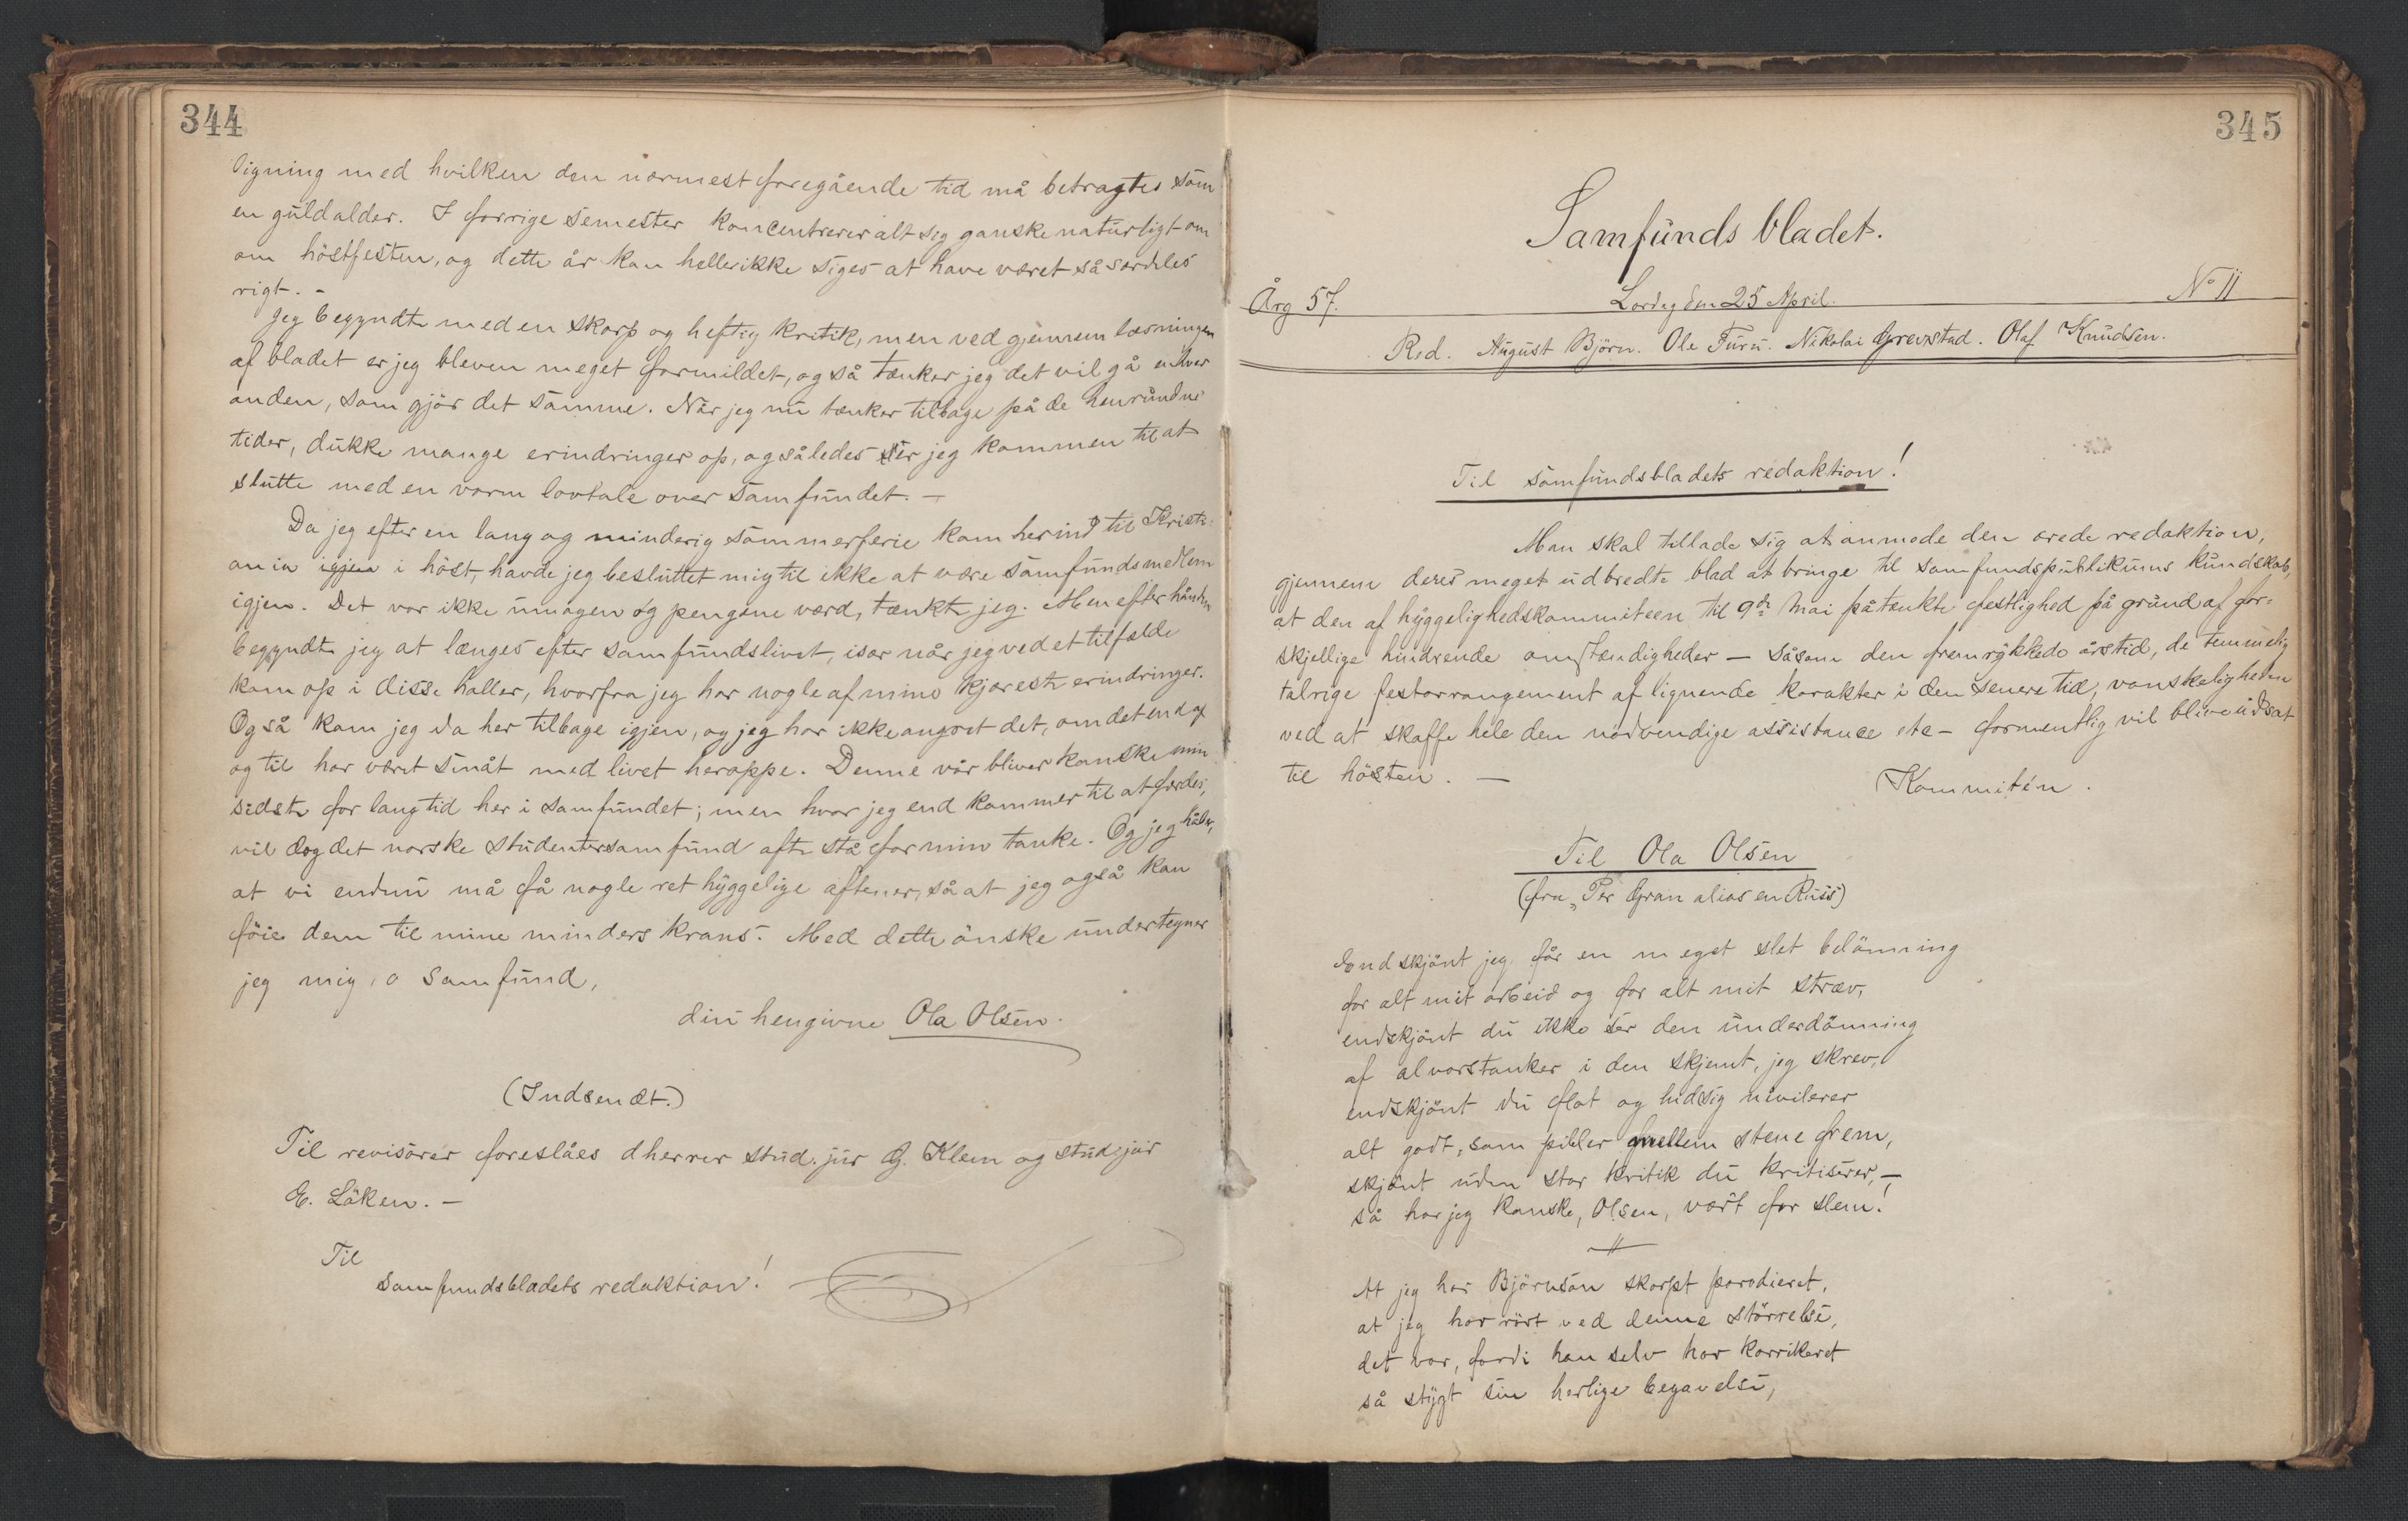 344
ligning med hvilken den nærmest foregående tid må betragtes som
en guldalder. I forrige semester koncentrerer alt sig ganske naturligt om
om höstfesten, og dette år kan heller ikke siges at have været så særdeles
rigt. -
Jeg begyndte med en skarp og heftig kritik, men ved gjennemlæsningen
af bladet er jeg bleven meget formildet, og så tænker jeg det vil gå enhver
anden, som gjör det samme. Når jeg nu tænker tilbage på de henrundne
tider, dukke mange erindringer op, og således er jeg kommen til at
slutte med en varm lovtale over samfundet. -
Da jeg efter en lang og minderig sommerferie kom herind til Kristi-
ania igjen i höst, havde jeg besluttet mig til ikke at være samfundsmedlem
igjen. Det var ikke umagen og pengene værd, tænkte jeg. Men efter hånden
begyndte jeg at længes efter samfundslivet, især når jeg ved et tilfælde
kom op i disse haller, hvorfra jeg har nogle af mine kjæreste erindringer.
Også kom jeg da her tilbage igjen, og jeg har ikke angret det, om det end af
og til har været småt med livet heroppe. Denne vår bliver kanske min
sidste for lang tid her i samfundet; men hvor jeg end kommer til at færdes,
vil dog det norske studentersamfund ofte stå for min tanke. Og jeg håber,
at vi endnu må få nogle ret hyggelige aftener, så at jeg også kan
föie dem til mine minders krans. Med dette önske undertegner
jeg mig, o samfund,
din hengivne Ola Olsen.
(Indsendt.)
Til revisorer foreslåes dherrer stud. jur G. Klem og stud. jur
E. Löken. -
Til
samfundsbladets redaktion!
345
Samfundsbladet.
Årg 57. Lördag den 25 April. No 11
Red. August Björn. Ole Furu. Nikolai Grevstad. Olaf Knudsen.
Til samfundsbladets redaktion!
Man skal tillade sig at anmode den ærede redaktion,
gjennem deres meget udbredte blad at bringe til samfundspublikums kundskab,
at den af hyggelighedskommiteen til 9de Mai påtænkte festlighed på grund af for-
skjellige hindrende omstændigheder - såsom den fremrykkede årstid, de temmelig
talrige festarrangement af lignende karakter i den senere tid, vanskeligheden
ved at skaffe hele den nödvendige assistance etc - formentlig vil blive udsat
til hösten. -
Kommitén.
Til Ola Olsen
(fra "Per Gran alias en Russ)
Endskjönt jeg får en meget slet belönning
for alt mit arbeid og for alt mit stræv,
endskjönt du ikke ser den underdönning
af alvorstanker i den skjemt, jeg skrev,
endskjönt du flot og hidsig nivilerer
alt godt, som pibler mellem stene frem,
skjönt uden stor kritik du kritiserer, -
så har jeg kanske, Olsen, vært for slem!
At jeg har Björnson skarpt parodieret,
at jeg har rört ved denne störrelse,
det var, fordi han selv har karrikeret
så stygt sin herlige begavelse,